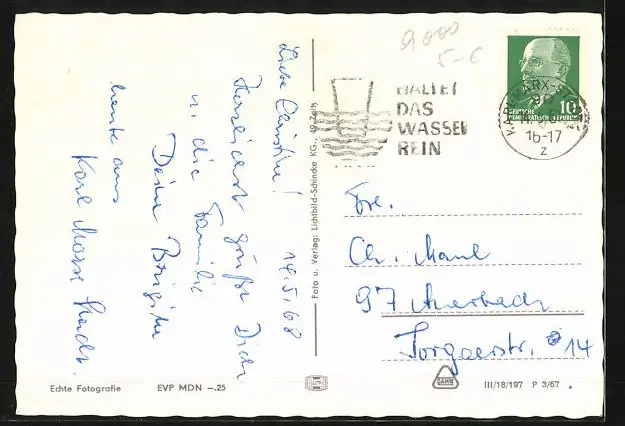 Liebe Christine! 14.5.68
Herzlichst grüßt Dich
u. die Familie
Deine Brigitte
heute aus
Karl Marx Stadt.
9000
5-€
HALTET
DAS
WASSER
REIN
KARL-MARX-ST
90
16-17
z
10
DEUTSCHE
DEMOKRATISCHE REPUBLIK
Frl.
Ch. Maul
97 Auerbach
Torgaerstr. 14
Foto u. Verlag: Lichtbild-Schincke KG.,
Echte Fotografie EVP MDN —.25
III/18/197 P 3/67